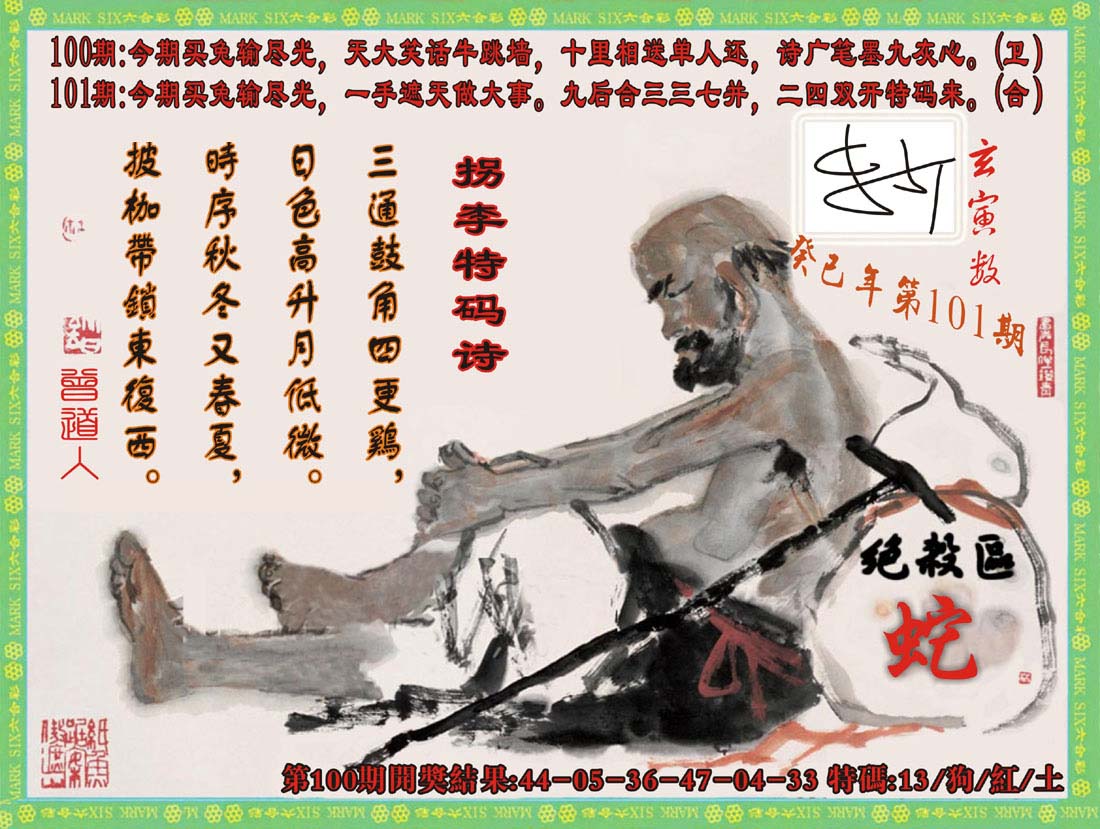 MARK SIX六合彩
100期:今期买兔输尽光，天大笑话牛跳墙，十里相送单人还，诗广笔墨九灰心。(卫)
101期:今期买兔输尽光，一手遮天做大事。九后合三三七并，二四双开特码来。(合)
玄寅数
癸巳年第101期
拐李特码诗
三通鼓角四更鷄，
日色高升月低微。
時序秋冬又春夏，
披枷帶鎖東復西。
曾道人
绝殺區
蛇
第100期開獎結果:44-05-36-47-04-33 特碼:13/狗/紅/土